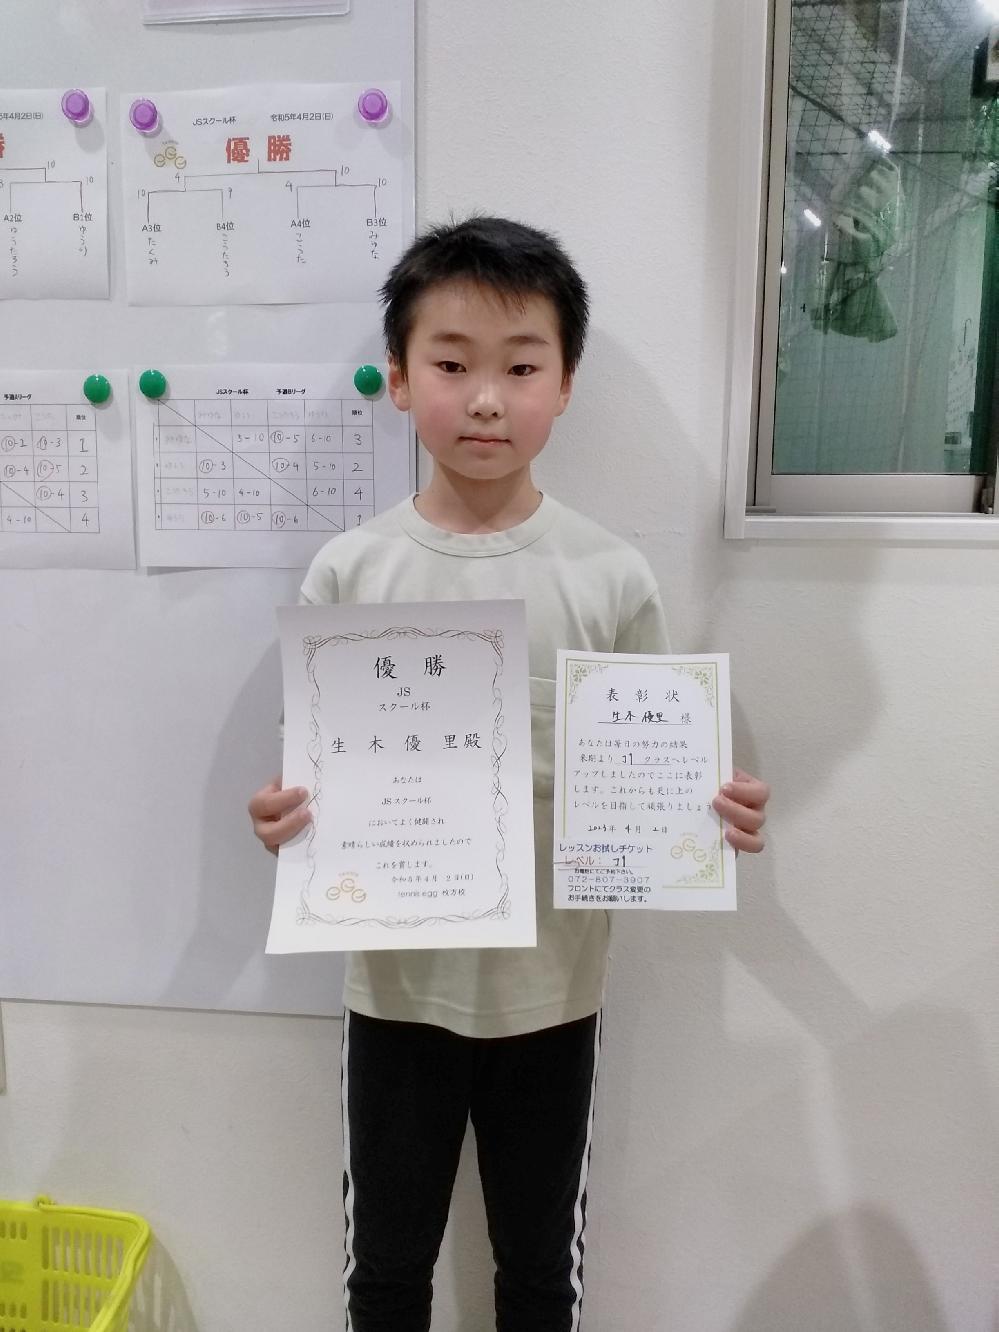 5年4月2日(日)
勝
10
10
A2位
B1位
ゆうたろう
ゆうり
JSスクール杯 令和5年4月2日(日)
優勝
4
10
10
9
4
10
A3位
B4位
A4位
B3位
たくみ
こうたろう
こうた
みゆな
予選Aリーグ
順位
⑩-2
⑩-3
1
⑩-4
⑩-5
2
⑩-4
3
4-10
4
JSスクール杯 予選Bリーグ
順位
3-10 ⑩-5 6-10 3
⑩-3 ⑩-4 5-10 2
5-10 4-10 6-10 4
⑩-6 ⑩-5 ⑩-6 1
優勝
JS
スクール杯
生木優里殿
あなたは
JSスクール杯
においてよく健闘され
素晴らしい成績を収められましたので
これを賞します。
令和5年4月2日(日)
tennis egg 枚方校
表彰状
生木優里 様
あなたは毎日の努力の結果
来期より J1 クラスへレベル
アップしましたのでここに表彰
します。これからも更に上の
レベルを目指して頑張りましょう
2023年 4月 2日
レッスンお試しチケット
レベル： J1
お電話にてご予約下さい。
072-807-3907
フロントにてクラス変更の
お手続きをお願いします。